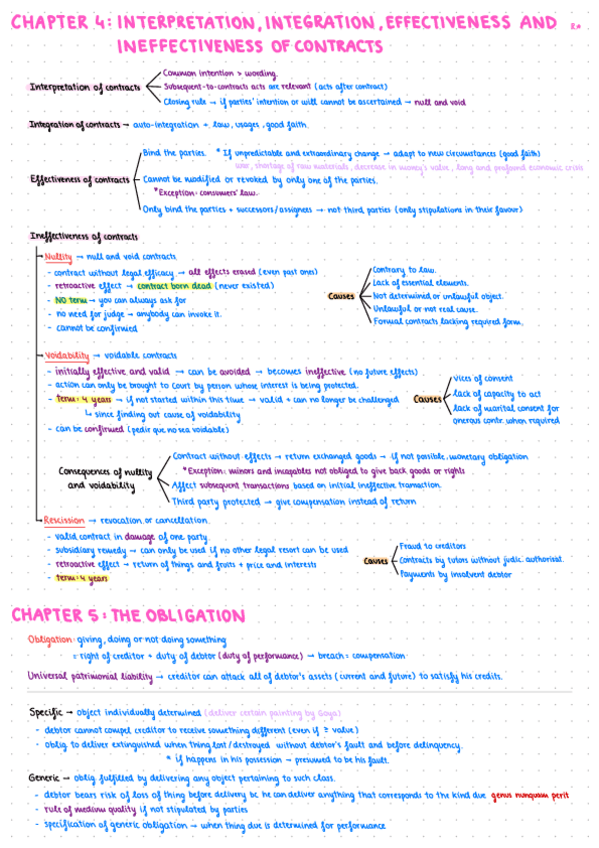 CHAPTER 4: INTERPRETATION, INTEGRATION, EFFECTIVENESS AND
INEFFECTIVENESS OF CONTRACTS
Interpretation of contracts
Common intention > wording.
Subsequent-to-contracts acts are relevant (acts after contract)
Closing rule → if parties' intention or will cannot be ascertained → null and void
Integration of contracts → auto-integration + law, usages, good faith.
Effectiveness of contracts
Bind the parties. * If unpredictable and extraordinary change → adapt to new circumstances (good faith)
war, shortage of raw materials, decrease in money's value, long and profound economic crisis
Cannot be modified or revoked by only one of the parties.
*Exception: consumers' law.
Only bind the parties + successors/assignees → not third parties (only stipulations in their favour)
Ineffectiveness of contracts
Nullity → null and void contracts
- contract without legal efficacy → all effects erased (even past ones)
- retroactive effect → contract born dead (never existed)
- NO term → you can always ask for
- no need for judge → anybody can invoke it.
- cannot be confirmed
Causes
Contrary to law.
Lack of essential elements.
Not determined or unlawful object.
Unlawful or not real cause.
Formal contracts lacking required form.
Voidability → voidable contracts
- initially effective and valid → can be avoided → becomes ineffective (no future effects)
- action can only be brought to court by person whose interest is being protected.
- term: 4 years → if not started within this time → valid + can no longer be challenged
↳ since finding out cause of voidability
- can be confirmed (pedir que no sea voidable)
Causes
vices of consent
lack of capacity to act
lack of marital consent for
onerous contr. when required
Consequences of nullity
and voidability
Contract without effects → return exchanged goods → if not possible, monetary obligation
*Exception: minors and incapables not obliged to give back goods or rights
Affect subsequent transactions based on initial ineffective transaction.
Third party protected → give compensation instead of return
Rescission → revocation or cancellation.
- valid contract in damage of one party
- subsidiary remedy → can only be used if no other legal resort can be used
- retroactive effect → return of things and fruits + price and interests
- term: 4 years
Causes
Fraud to creditors
Contracts by tutors without judic. authorisat.
Payments by insolvent debtor
CHAPTER 5: THE OBLIGATION
Obligation: giving, doing or not doing something
= right of creditor + duty of debtor (duty of performance) → breach = compensation
Universal patrimonial liability → creditor can attack all of debtor's assets (current and future) to satisfy his credits.
Specific → object individually determined (deliver certain painting by Goya)
- debtor cannot compel creditor to receive something different (even if ≥ value)
- oblig to deliver extinguished when thing lost/destroyed without debtor's fault and before delinquency.
* if happens in his possession → presumed to be his fault.
Generic → oblig fulfilled by delivering any object pertaining to such class.
- debtor bears risk of loss of thing before delivery bc he can deliver anything that corresponds to the kind due. genus nunquam perit
- rule of medium quality if not stipulated by parties
- specification of generic obligation → when thing due is determined for performance